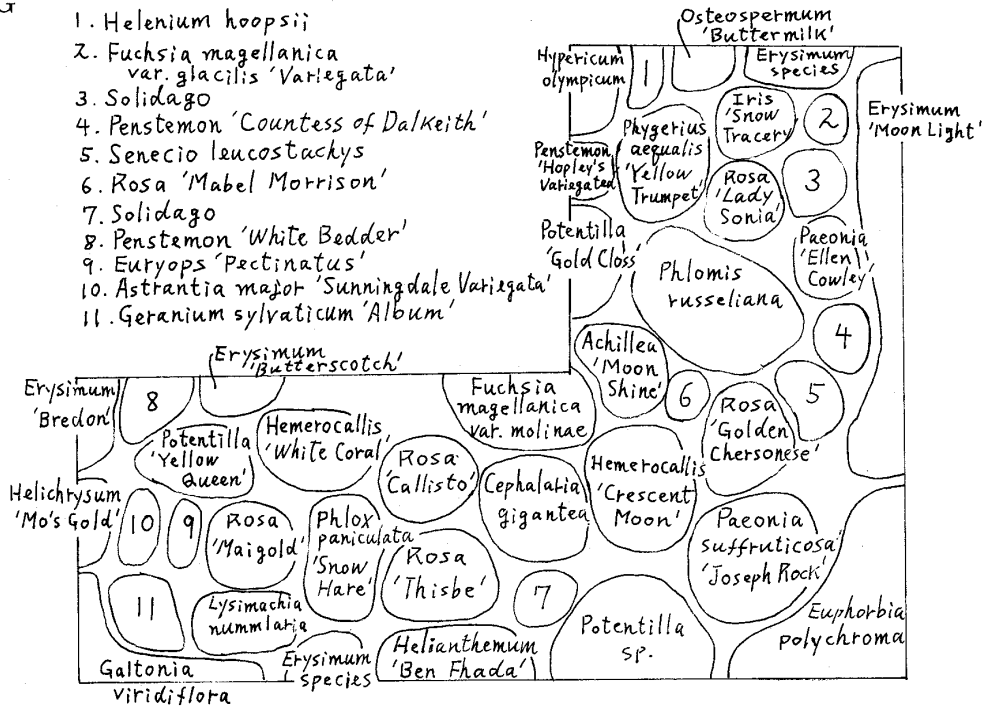 1. Helenium hoopsii
2. Fuchsia magellanica
var. glacilis 'Variegata'
3. Solidago
4. Penstemon 'Countess of Dalkeith'
5. Senecio leucostachys
6. Rosa 'Mabel Morrison'
7. Solidago
8. Penstemon 'White Bedder'
9. Euryops 'Pectinatus'
10. Astrantia major 'Sunningdale Variegata'
11. Geranium sylvaticum 'Album'
Osteospermum
'Buttermilk'
Hypericum
olympicum
1
Erysimum
species
Erysimum
'Moon Light'
Iris
'Snow
Tracery'
2
Phygerius
aequalis
'Yellow
Trumpet'
Penstemon
'Hopley's
Variegated'
Rosa
'Lady
Sonia'
3
Potentilla
'Gold Closs'
Paeonia
'Ellen
Cowley'
Phlomis
russeliana
4
Achillea
'Moon
Shine'
6
5
Rosa
'Golden
Chersonese'
Erysimum
'Butterscotch'
Erysimum
'Bredon'
8
Fuchsia
magellanica
var. molinae
Potentilla
'Yellow
Queen'
Hemerocallis
'White Coral'
Rosa
'Callisto'
Cephalaria
gigantea
Hemerocallis
'Crescent
Moon'
Helichrysum
'Mo's Gold'
10
9
Rosa
'Maigold'
Phlox
paniculata
'Snow
Hare'
Rosa
'Thisbe'
Paeonia
suffruticosa
'Joseph Rock'
11
Lysimachia
nummlaria
7
Potentilla
sp.
Euphorbia
polychroma
Galtonia
viridiflora
Erysimum
species
Helianthemum
'Ben Fhada'